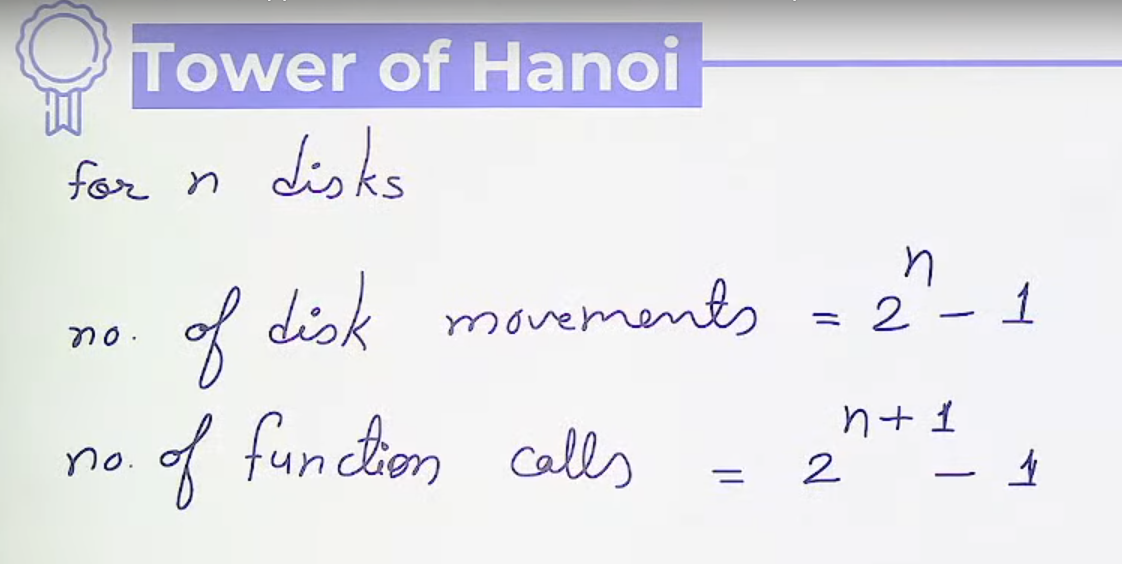 Tower of Hanoi
for n disks
no. of disk movements = 2^n - 1
no. of function calls = 2^(n+1) - 1